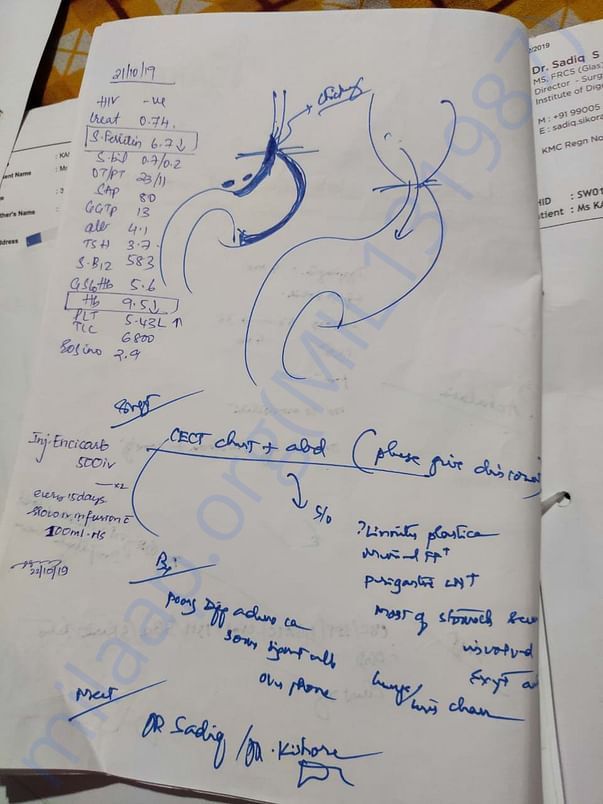 21/10/19
HIV -ve
Creat 0.74
S. Ferritin 6.7↓
S. bil 0.7/0.2
OT/PT 23/11
SAP 80
GGTP 13
alb 4.1
TSH 3.7
S. B12 583
Hb 9.5↓
PLT 5.43L ↑
TLC 6800
Eosino 2.9
CECT chest + abd (please give discount)
S/o
? Linnitis plastica
Perigastric LN↑
Most of stomach
involved
Inj. Encicarb
500 iv
x2
every 15 days
slow infusion
100ml NS
22/10/19
Bx:
poorly Diff adeno ca
over phone
Meet
DR Sadiq / DR. Kishore
2/2019
Dr. Sadiq S
MS, FRCS (Glas
Director - Surg
Institute of Dige
M : +91 99005
E : sadiq.sikora
KMC Regn No
HID : SW01
tient : Ms KA
: KA
ent Name : Mr
: 3
ther's Name
ddress
milaap.org(MIL 131987)